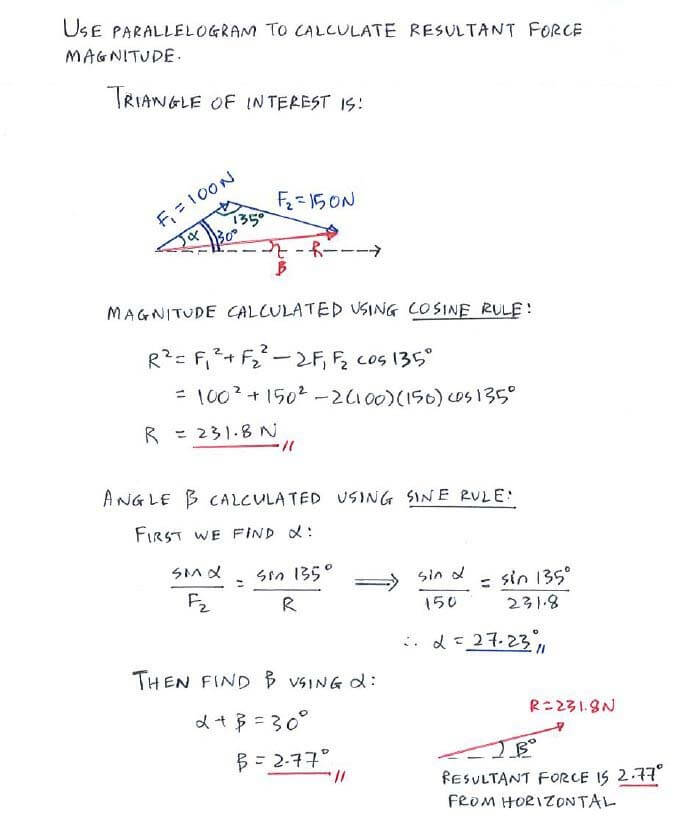 USE PARALLELOGRAM TO CALCULATE RESULTANT FORCE
MAGNITUDE.
TRIANGLE OF INTEREST IS:
F₁ = 100N
F₂ = 150N
135°
α
30°
R
β
MAGNITUDE CALCULATED USING COSINE RULE:
R² = F₁² + F₂² − 2F₁ F₂ cos 135°
= 100² + 150² − 2(100)(150) cos 135°
R = 231.8 N
ANGLE β CALCULATED USING SINE RULE:
FIRST WE FIND α:
sin α / F₂ = sin 135° / R ⟹ sin α / 150 = sin 135° / 231.8
∴ α = 27.23°
THEN FIND β USING α:
α + β = 30°
β = 2.77°
R = 231.8N
β°
RESULTANT FORCE IS 2.77°
FROM HORIZONTAL